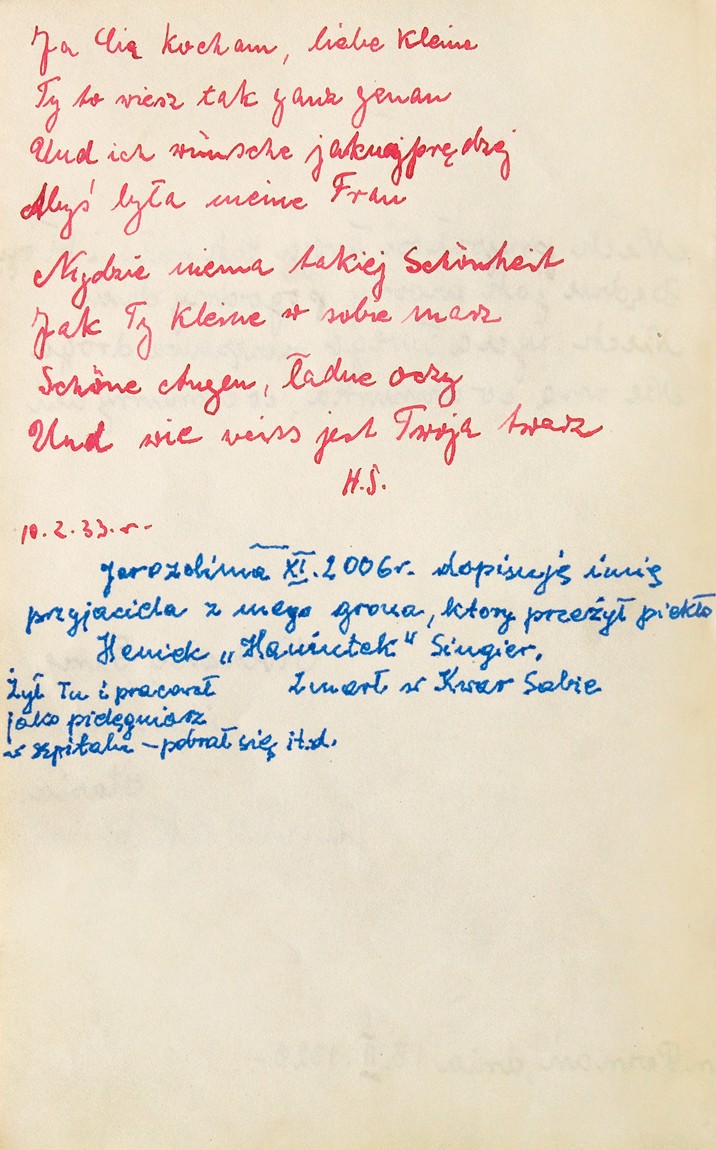 Ja Cię kocham, liebe Kleine
Ty to wiesz tak ganz genau
Und ich wünsche jaknajprędzej
Abyś była meine Frau
Nigdzie niema takiej Schönheit
Jak Ty Kleine w sobie masz
Schöne Augen, ładne oczy
Und wie weiss jest Twoja twarz
H.S.
10.2.33.r.-
Jerozolima XI.2006r. dopisuję imię
przyjaciela z mego grona, który przeżył piekło
Heniek „Haniutek" Singier.
Żył Tu i pracował Zmarł w Kwar Sabie
jako pielęgniarz
w szpitalu – pobrał się, it.d.